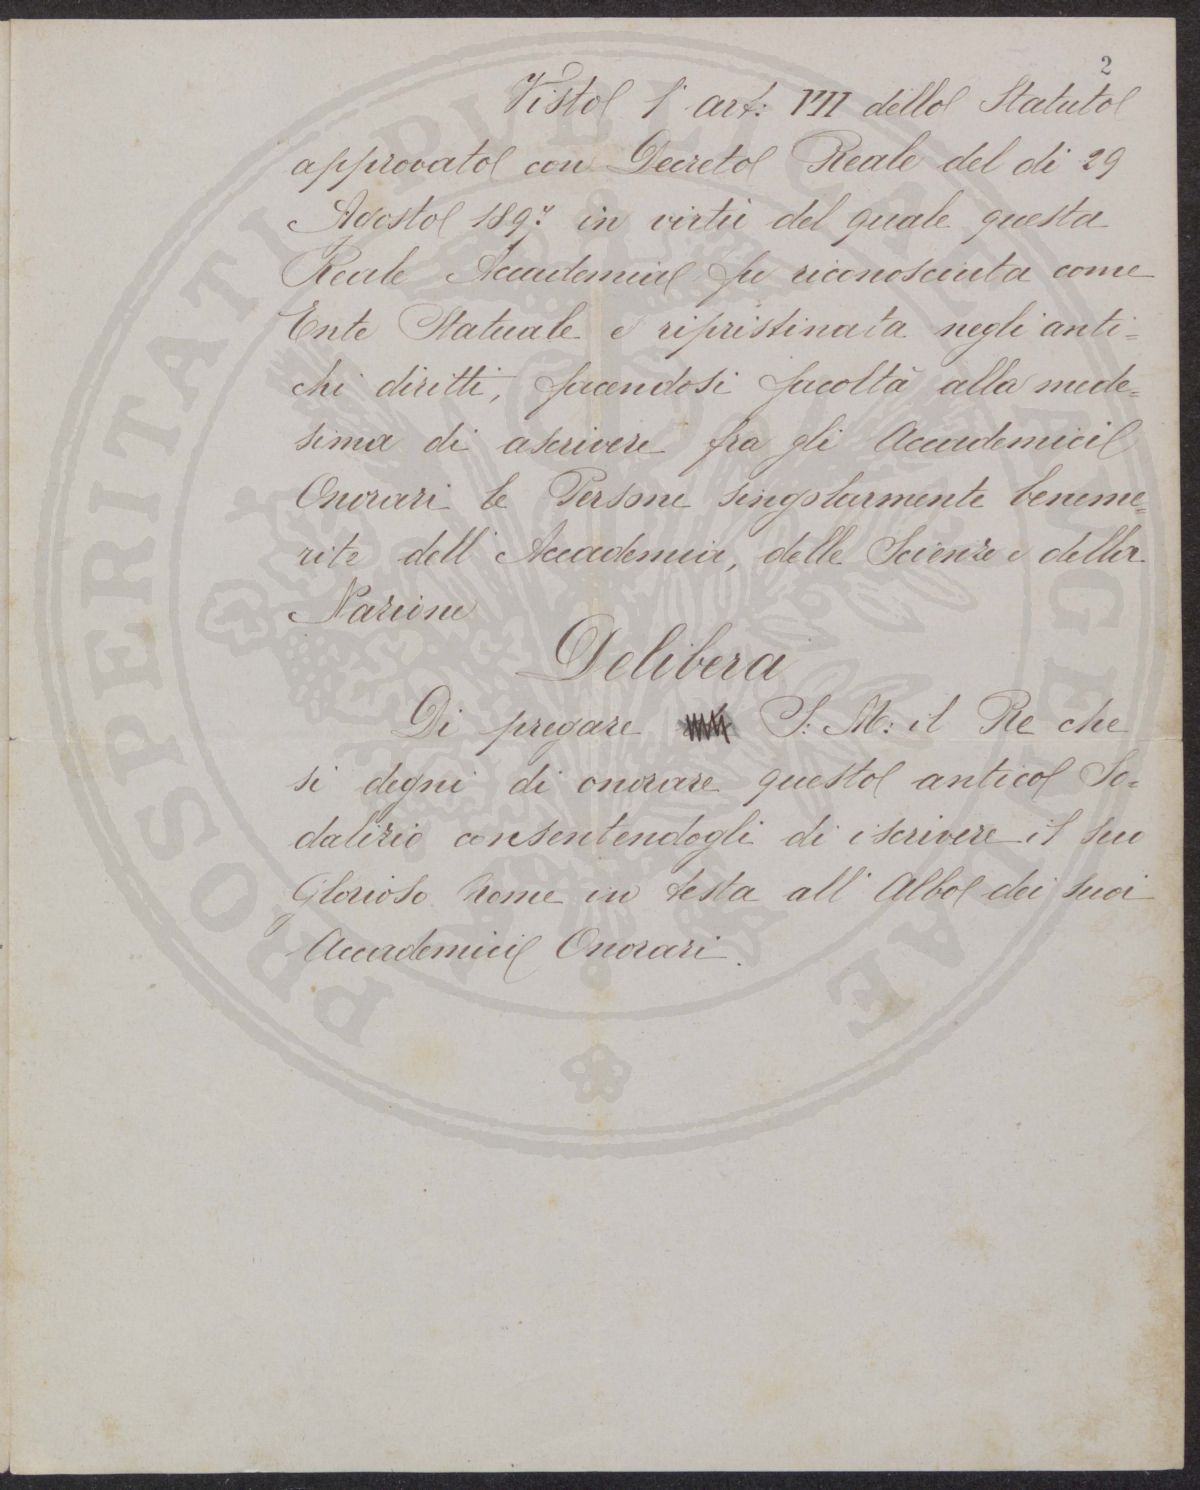 2
Visto l'art: VII dello Statuto
approvato con Decreto Reale del di 29
Agosto 1897 in virtù del quale questa
Reale Accademia fu riconosciuta come
Ente Statuale e ripristinata negli anti=
chi diritti, facendosi facoltà alla mede=
sima di ascrivere fra gli Accademici
Onorari le Persone singolarmente beneme=
rite dell'Accademia, delle Scienze e della
Nazione
Delibera
Di pregare S: M: il Re che
si degni di onorare questo antico So=
dalizio consentendogli di iscrivere il suo
Glorioso Nome in testa all'Albo dei suoi
Accademici Onorari.
PROSPERITATI PUBLICAE AUGENDAE